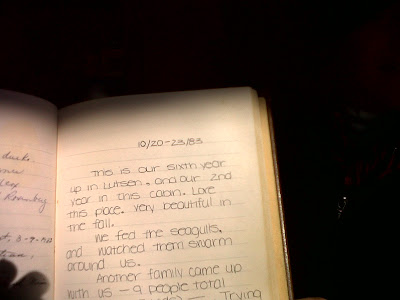 dusk.
10/20-23/83
This is our sixth year
up in Lutsen, and our 2nd
year in this cabin. Love
this place. Very beautiful in
the fall.
We fed the seagulls,
and watched them swarm
around us.
Another family came up
with us — 9 people total
Trying